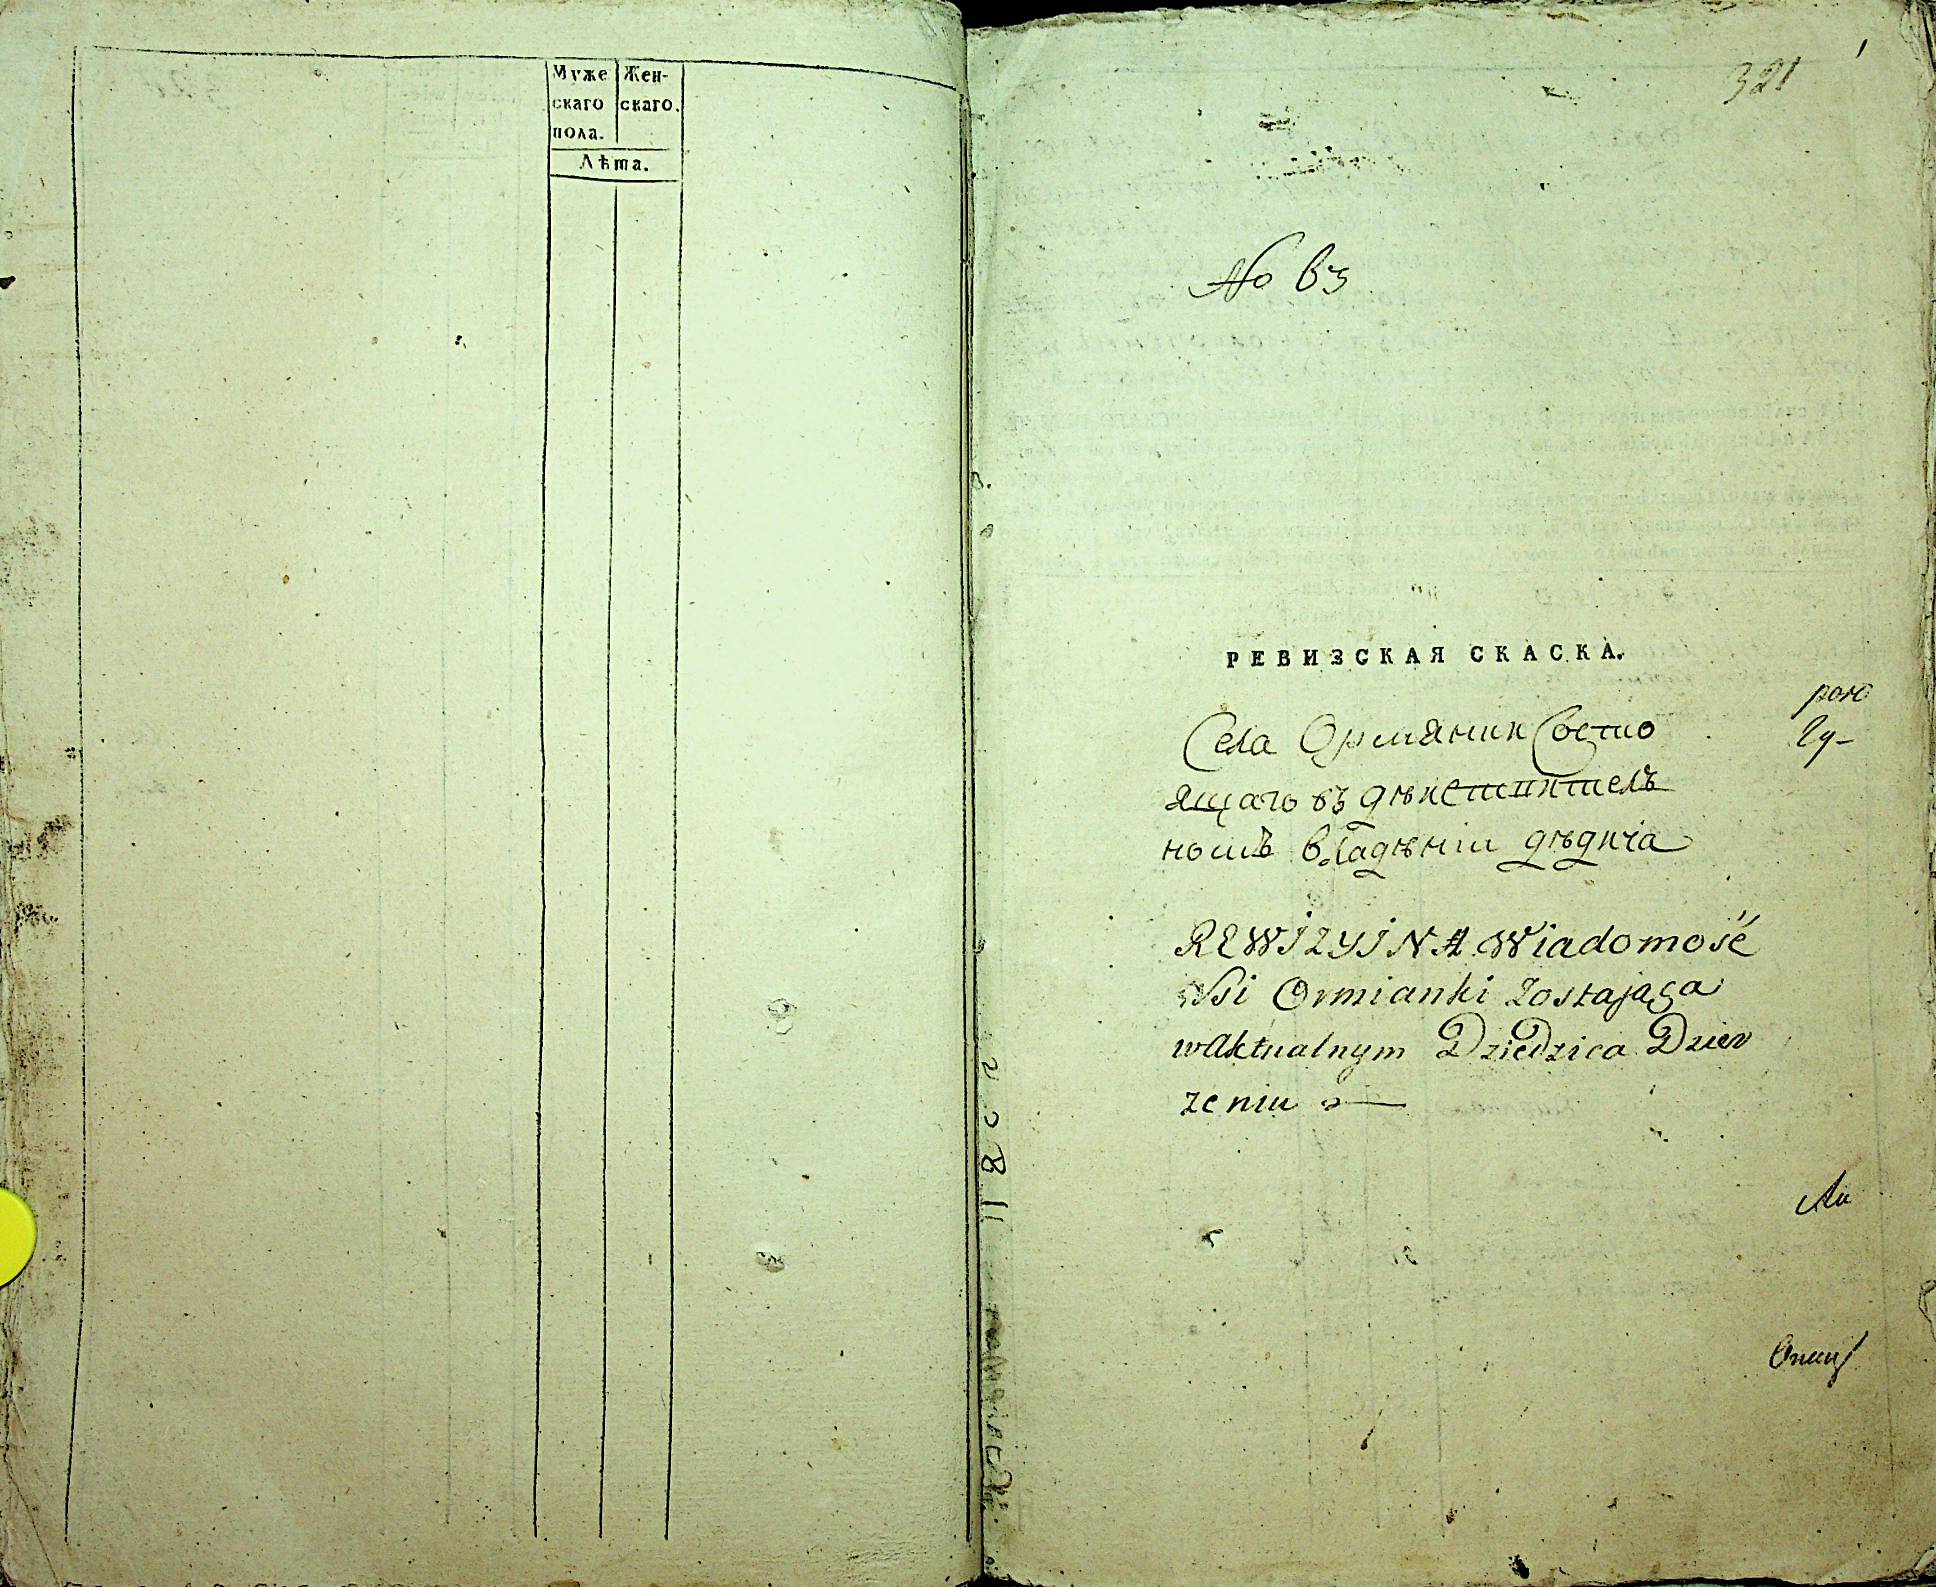 Муже Жен-
скаго скаго.
пола.
Лѣта.
321
No 63
РЕВИЗСКАЯ СКАСКА.
Села Ормянки Состо
ящаго въ дѣйствитель
номъ владѣніи дѣдича
REWIZYINA Wiadomość
Wsi Ormianki Zostająca
w aktualnym Dziedzica Dzier
żeniu